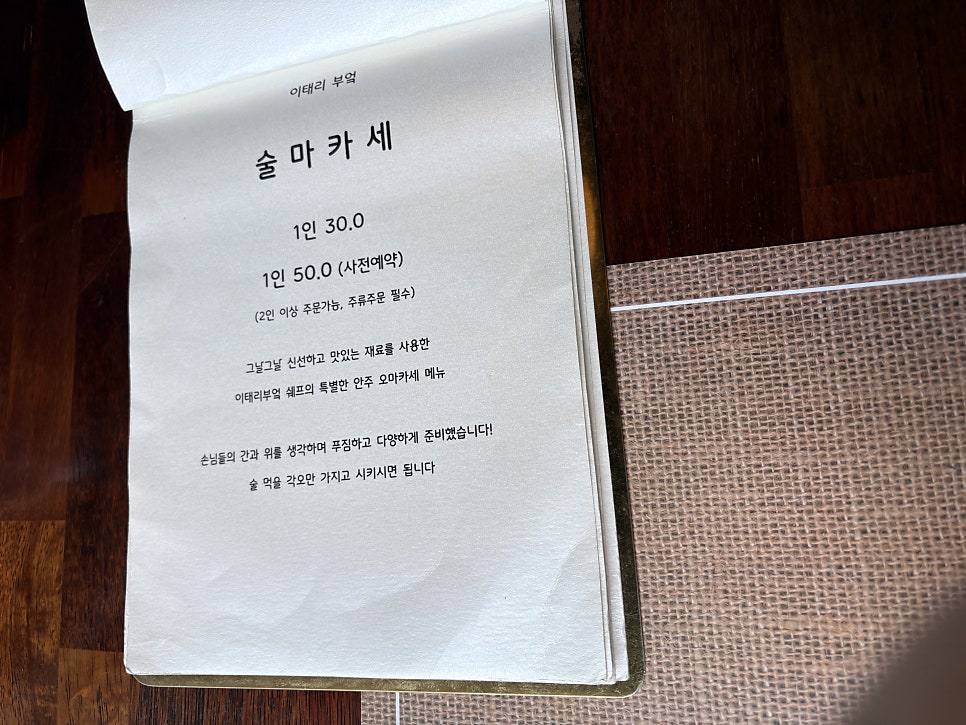 이태리 부엌
술마카세
1인 30.0
1인 50.0 (사전예약)
(2인 이상 주문가능, 주류주문 필수)
그날그날 신선하고 맛있는 재료를 사용한
이태리부엌 쉐프의 특별한 안주 오마카세 메뉴
손님들의 간과 위를 생각하며 푸짐하고 다양하게 준비했습니다!
술 먹을 각오만 가지고 시키시면 됩니다